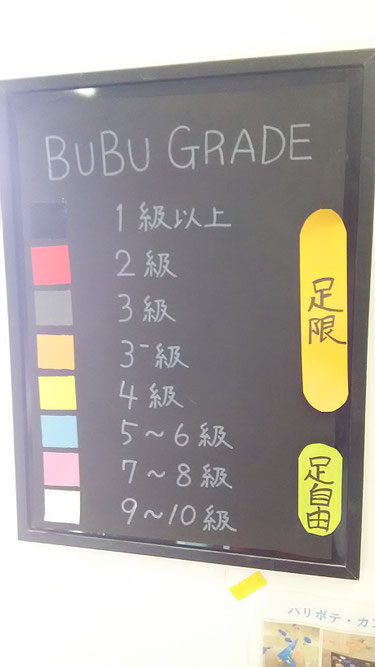 BUBU GRADE
1級以上
2級
3級
3⁻級
4級
5～6級
7～8級
9～10級
足限
足自由
ハリボテ・カ